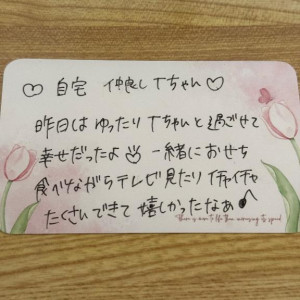 ♡ 自宅 仲良しTちゃん♡
昨日は ゆったり Tちゃんと過ごせて
幸せだったよ 一緒におせち
食べながらテレビ見たり イチャイチャ
たくさんできて 嬉しかったなぁ♪
There is more to life than increasing its speed